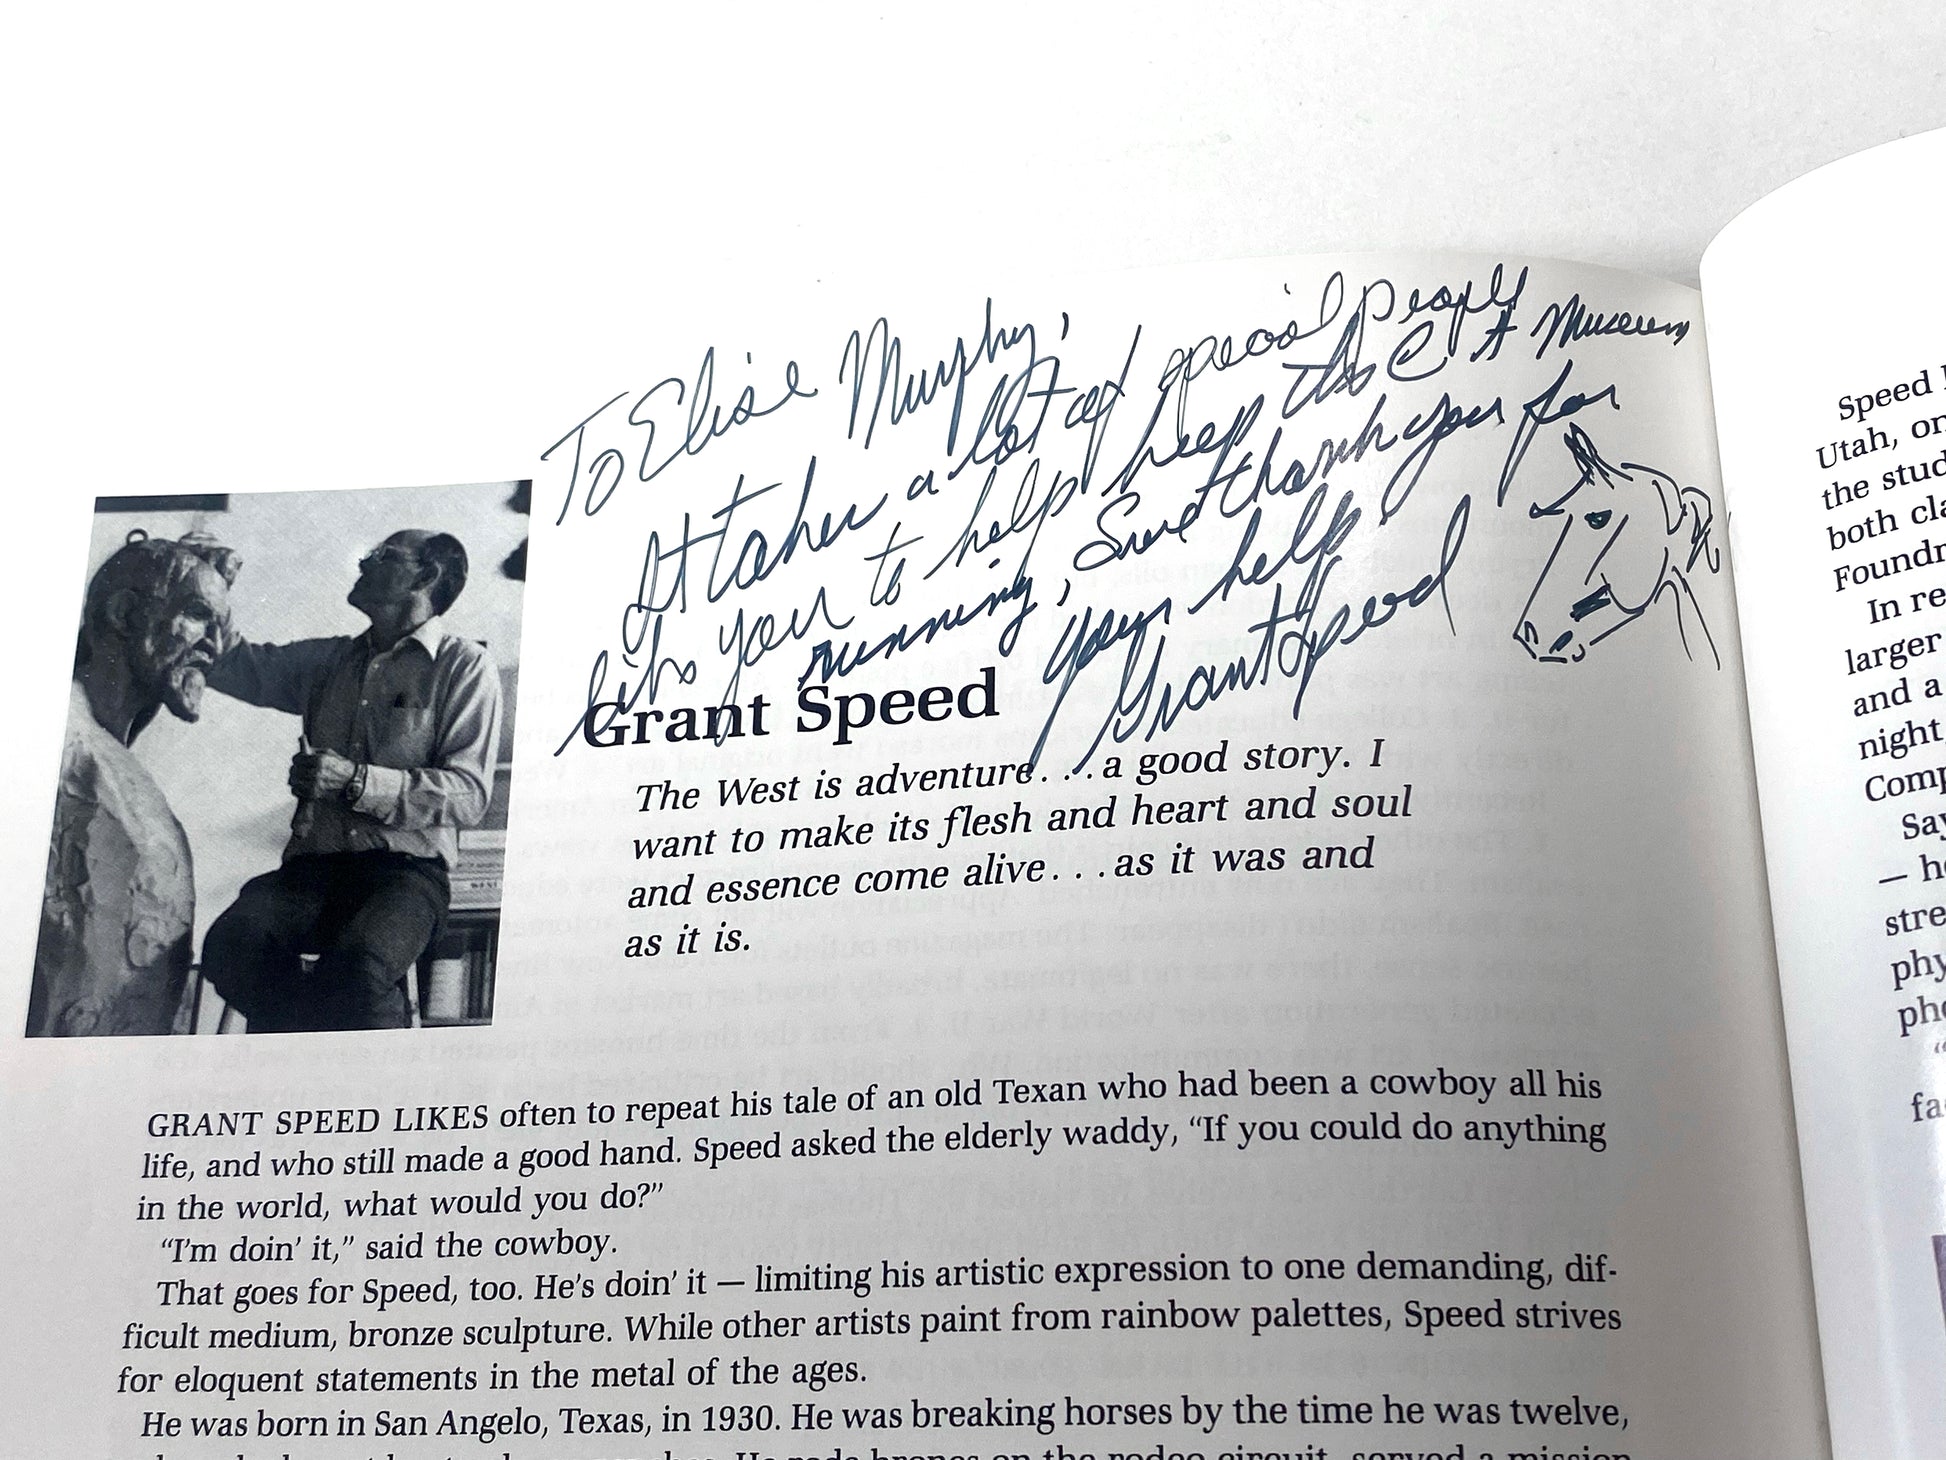 To Elise Murphy,
It takes a lot of special people
like you to help keep this C A Museum
running, Sure thank you for
your help
Grant Speed
Grant Speed
The West is adventure. . .a good story. I
want to make its flesh and heart and soul
and essence come alive. . .as it was and
as it is.
GRANT SPEED LIKES often to repeat his tale of an old Texan who had been a cowboy all his
life, and who still made a good hand. Speed asked the elderly waddy, “If you could do anything
in the world, what would you do?”
“I'm doin' it,” said the cowboy.
That goes for Speed, too. He's doin' it — limiting his artistic expression to one demanding, dif-
ficult medium, bronze sculpture. While other artists paint from rainbow palettes, Speed strives
for eloquent statements in the metal of the ages.
He was born in San Angelo, Texas, in 1930. He was breaking horses by the time he was twelve,
He rode broncs on the rodeo circuit, served a mission
Speed
Utah, on
the stud
both cla
Foundr
In re
larger
and a
night
Comp
Say
— he
stre
phy
pho
“
fa